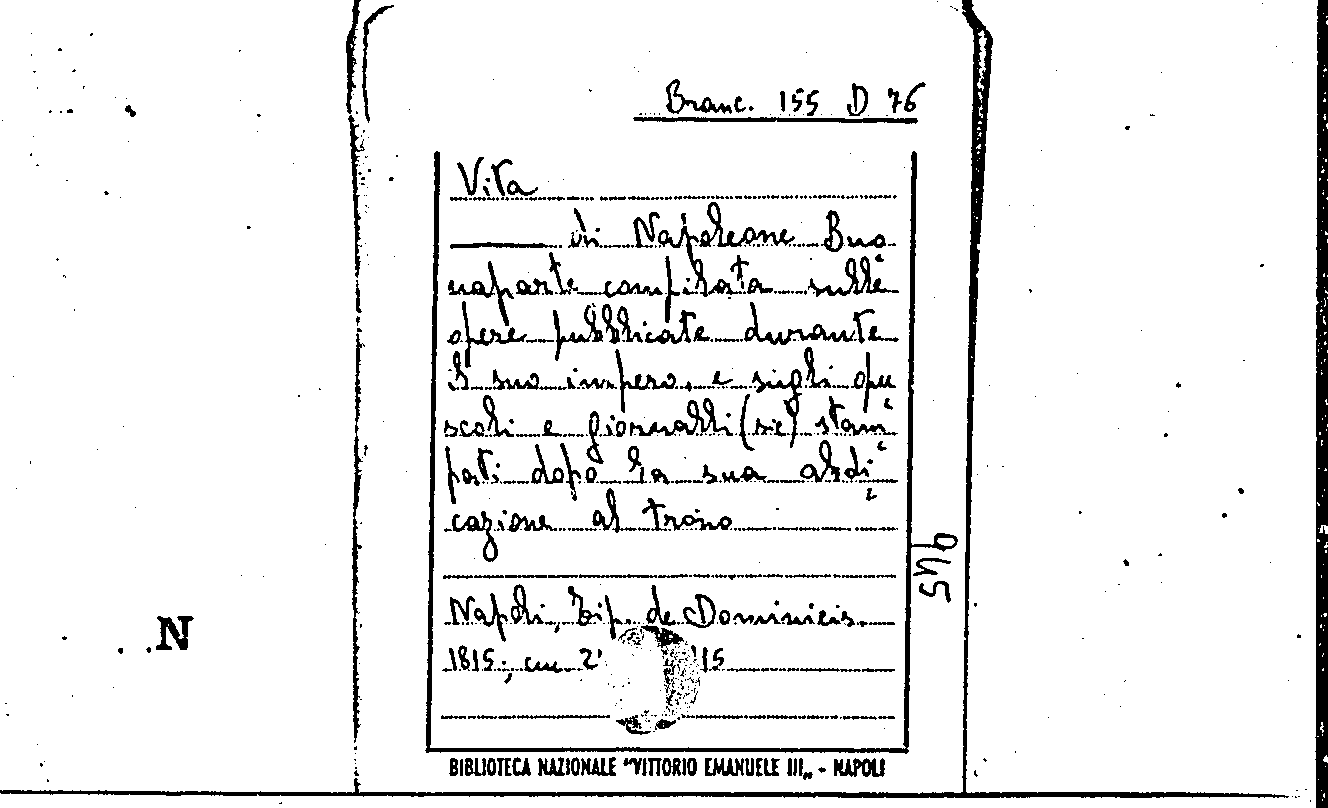 Branc. 155 D 76
Vita
di Napoleone Buo
naparte compilata sulle
opere pubblicate durante
il suo impero, e sugli opu
scoli e giornalli (sic) stam
pati dopo la sua abdi
cazione al trono
Napoli, Tip. de Dominicis.
1815; cm. 2 15
945
N
BIBLIOTECA NAZIONALE "VITTORIO EMANUELE III„ - NAPOLI